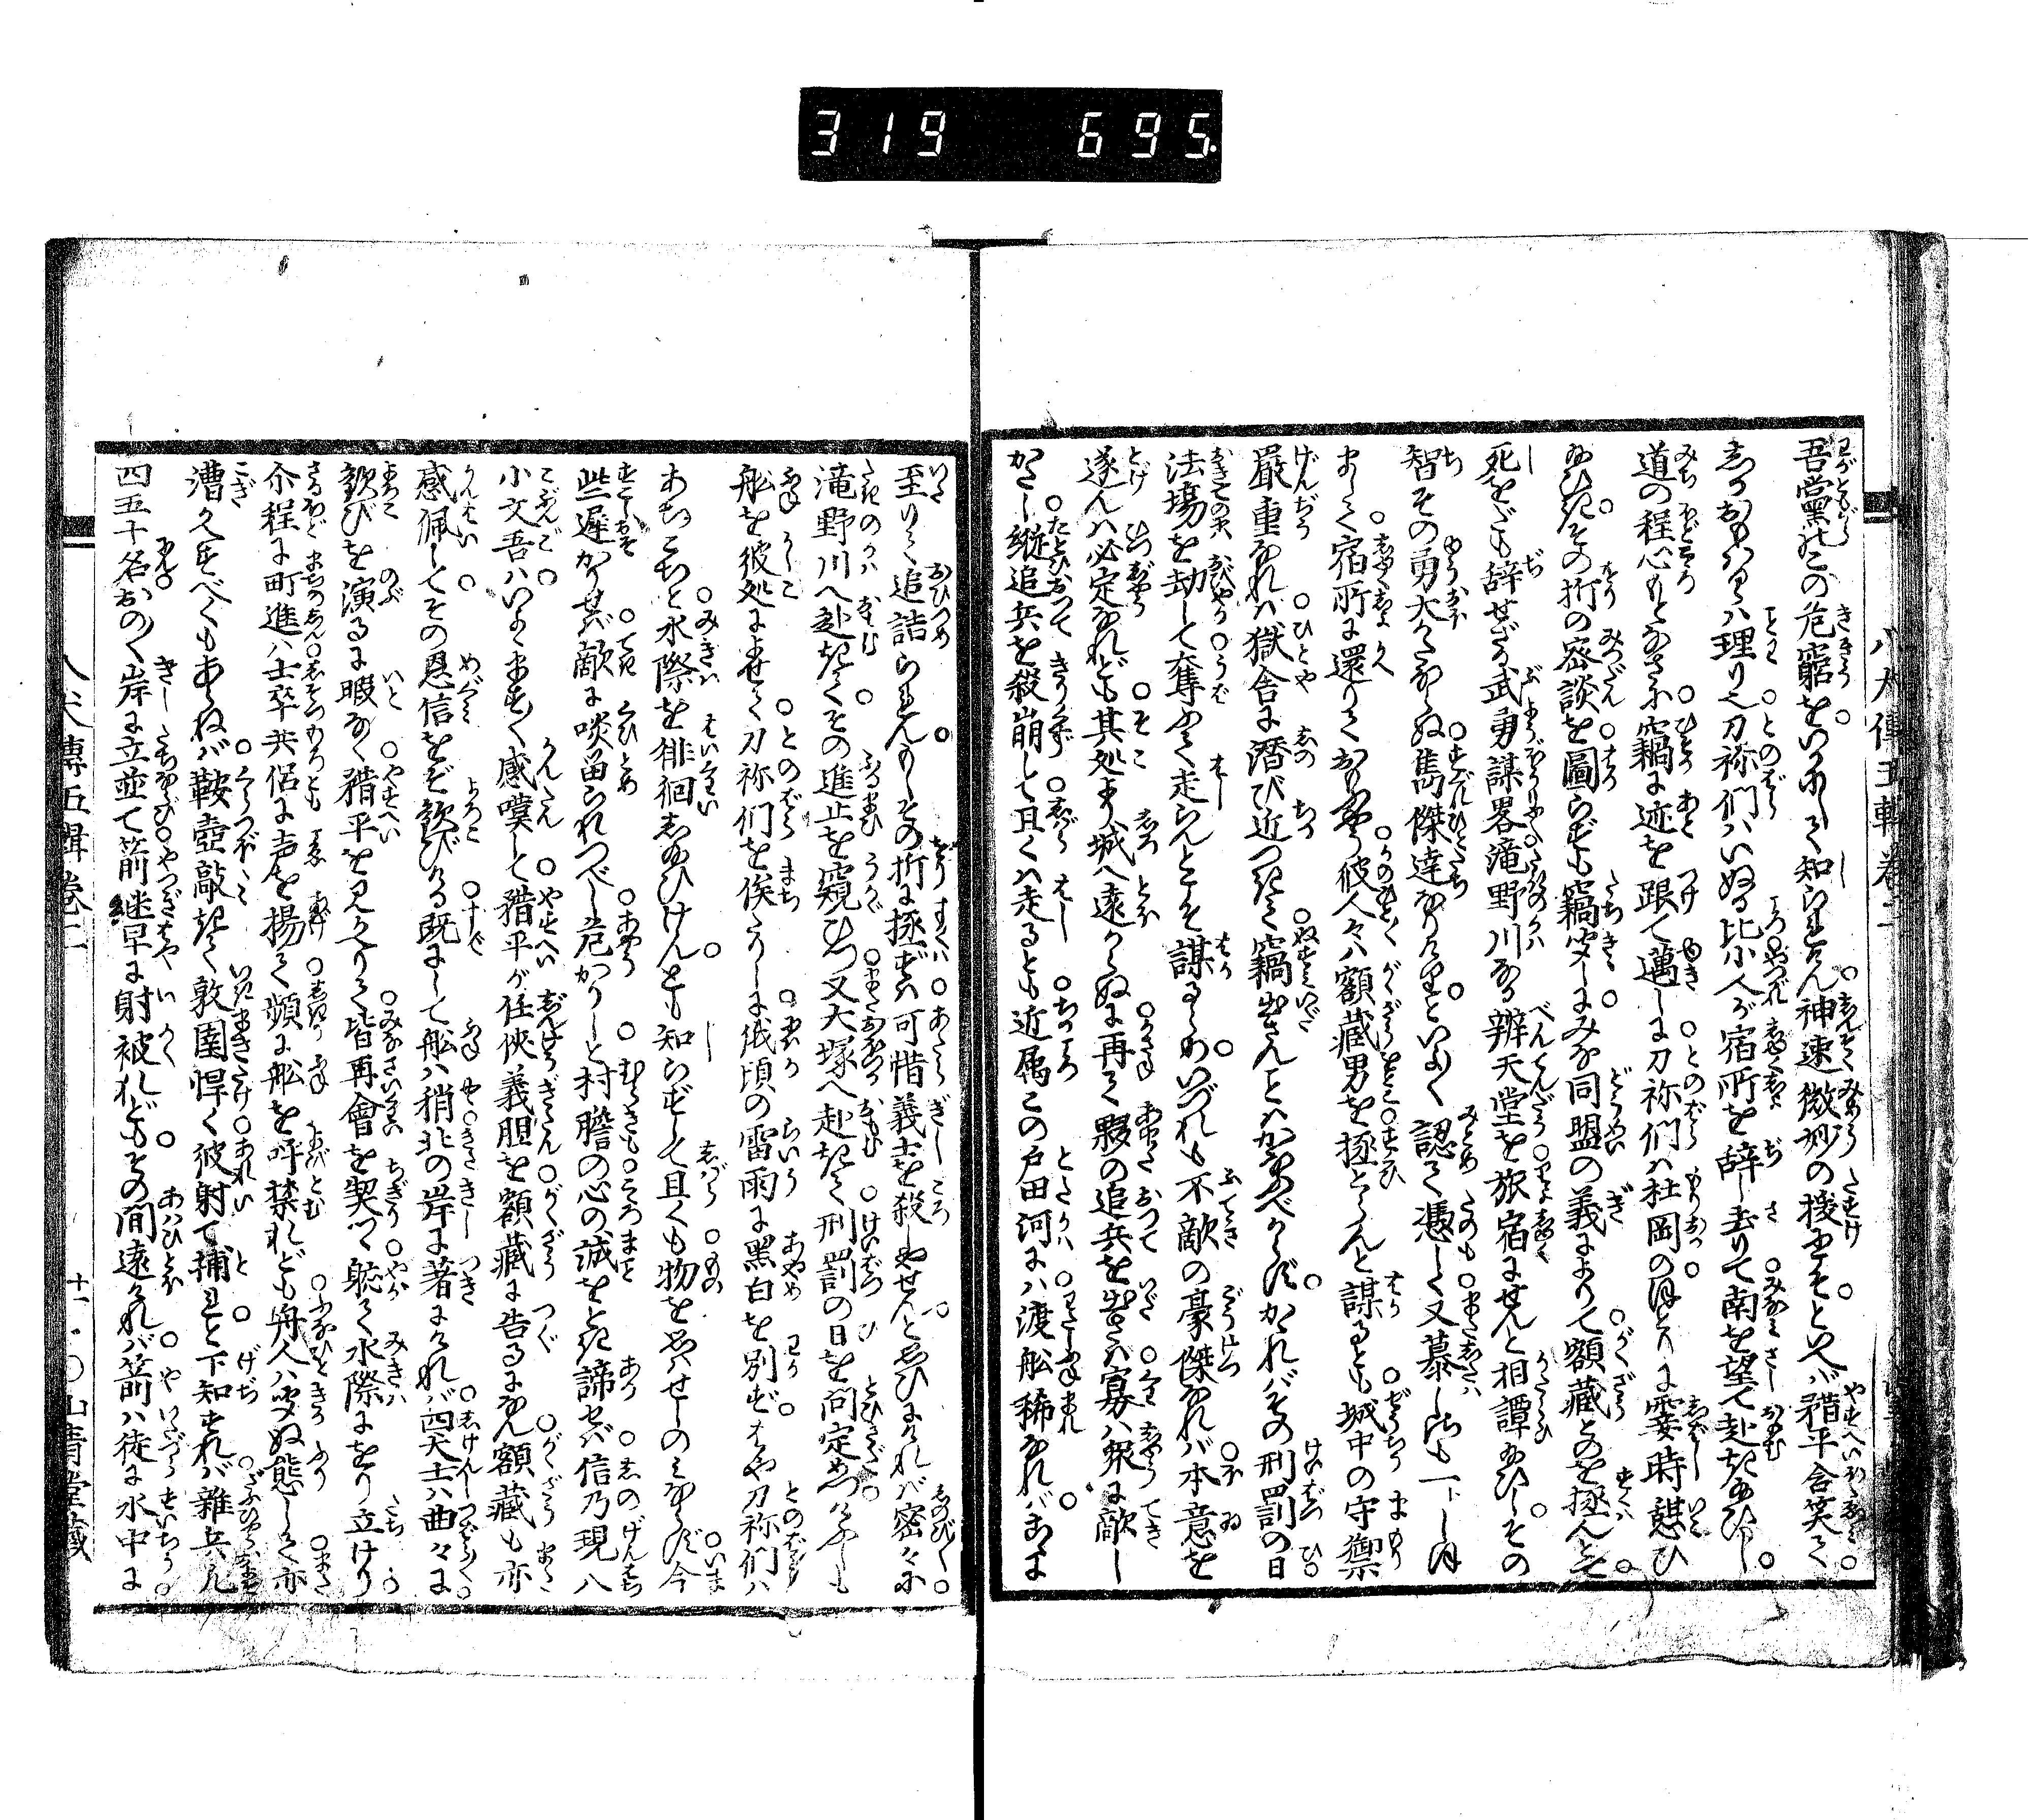 319 695
八犬傳五輯卷二
吾黨のこの危窮をいかにして知られけん神速微妙の援にこそといへば猎平含笑て
しかおもへるは理り也刀祢們はいぬる比小人が宿所を辞し去りて南を望て赴き給ひし
道の程心もとなさに竊に迹を跟て邁しに刀祢們は杜岡のほとりに霎時憩ひ
給ひきその折の密談を圖らずも竊聞しにみな同盟の義によりて額藏とのを拯んとて
死をだも辞せざる武勇謀畧滝野川なる辨天堂を旅宿にせんと相譚給ひしその
智その勇大かたならぬ雋傑達なりけりといよゝ認て憑しく又慕しさも一トしほ
まして宿所に還りておもふやう彼人々は額藏男を拯とらんと謀るとも城中の守禦
嚴重なれば獄舎に潜び近つきて竊出さんことはかなふべからずかゝればその刑罰の日
法場を劫して奪ふて走らんとこそ謀るらめいづれも不敵の豪傑なれば本意を
遂んは必定なれども其処より城へ遠からぬに再て夥の追兵を出さば寡は衆に敵し
がたし縦追兵を殺崩して且くは走るとも近属この戸田河には渡舩稀なればこゝに
至りて追詰られんもしその折に拯ずは可惜義士を殺しやせんと思ひにければ密々に
滝野川へ赴きてその進止を窺ひつ又大塚へ赴きて刑罰の日を問定めつけふしも
舩を彼処によせて刀祢們を俟たりしに俄頃の雷雨に黒白を別ずはや刀祢們は
あちこちと水際を徘徊し給ひけんとも知らずして且くも物を思はせしのみならず今
些遅かりせば敵に啖畄られつべし危かりしと村膽の心の誠をとき諦せば信乃現八
小文吾はいよゝますます感嘆して猎平が任侠義胆を額藏に告るになん額藏も亦
感佩してその恩信をぞ歓びける既にして舩は稍北の岸に著にければ四犬士は曲々に
歓びを演るに暇なく猎平を見かへりて皆再會を契りつゝ軈て水際にをり立けり
尒程に町進は士卒共侶に声を揚て頻に舩を呼禁れども舟人は聞ぬ態して亦
漕かへすべくもあらねば鞍壺敲きて敦圉悍く彼射て捕れと下知すれば雜兵凡
四五十名おの〳〵岸に立並て箭継早に射被れどもその間遠ければ箭は徒に水中に
八犬傳五輯卷二
十一
○山青堂藏